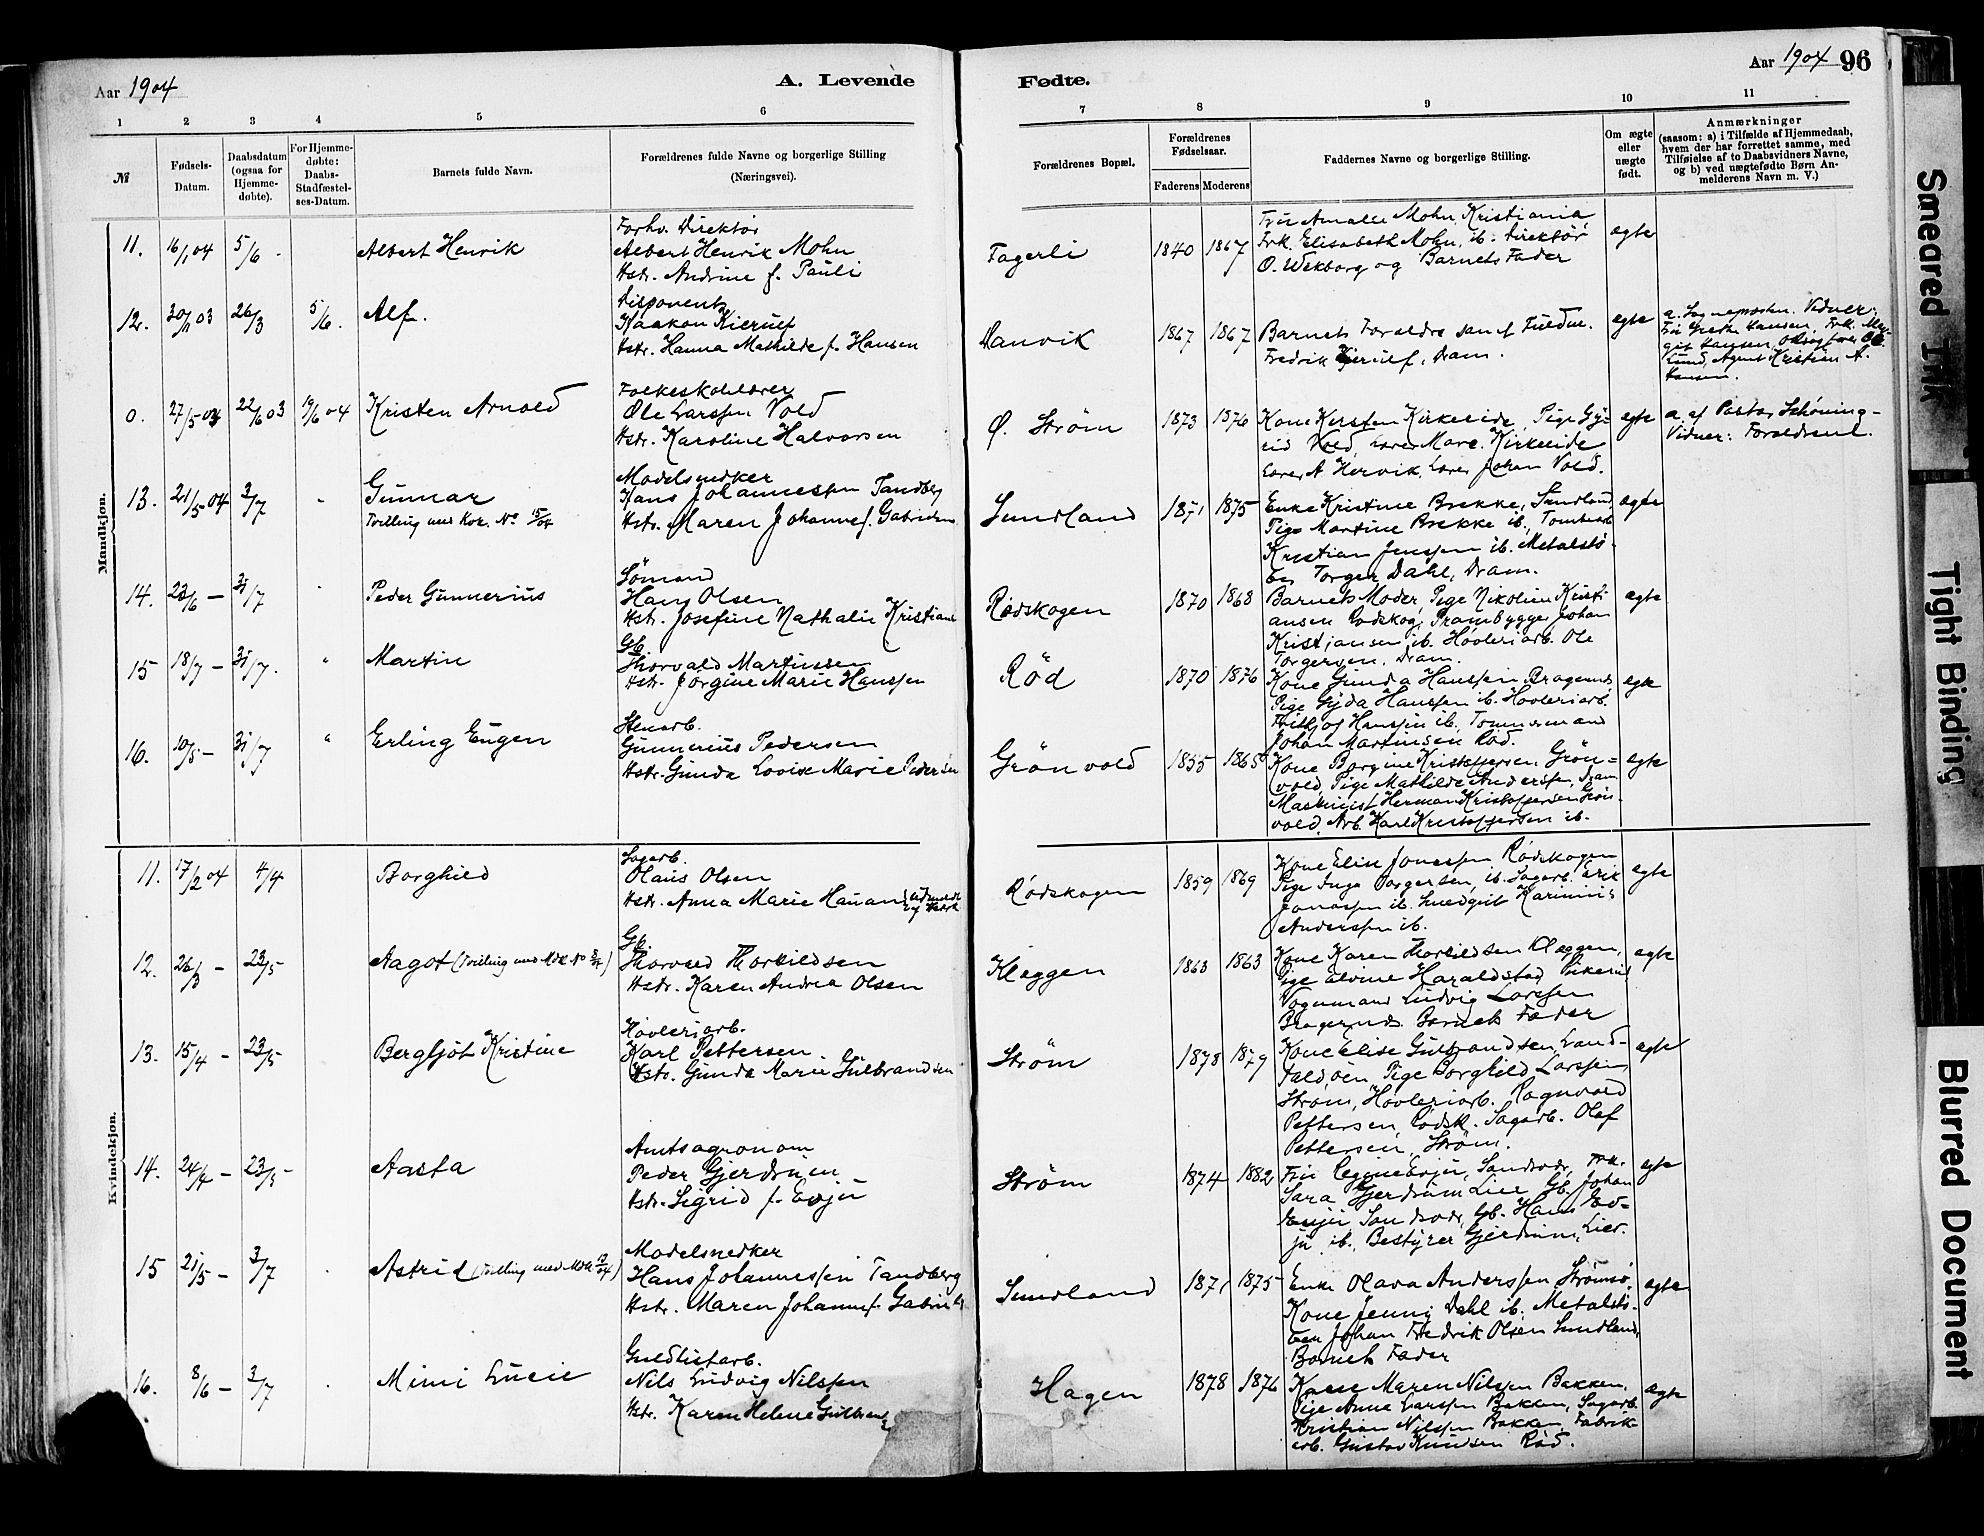 Aar 1904
A. Levende
Fødte.
Aar 1904 96
1 2 3 4 5 6 7 8 9 10 11
№
Fødsels-
Datum.
Daabsdatum
(ogsaa for
Hjemme-
døbte).
For Hjemme-
døbte:
Daabs-
Stadfæstel-
ses-Datum.
Barnets fulde Navn.
Forældrenes fulde Navne og borgerlige Stilling
(Næringsvei).
Forældrenes Bopæl.
Forældrenes
Fødselsaar.
Faderens Moderens
Faddernes Navne og borgerlige Stilling.
Om ægte
eller
uægte
født.
Anmærkninger
(saasom: a) i Tilfælde af Hjemmedaab,
hvem der har forrettet samme, med
Tilføielse af to Daabsvidners Navne,
og b) ved uægtefødte Børn An-
melderens Navn m. V.)
Mandkjøn.
11. 16/1 04 5/6 -
Albert Henrik
Forhv. Direktør
Albert Henrik Mohn
Hstr. Andrine f. Pauli
Fagerli
1840 1867
Fru Amalie Mohn, Kristiania
Frk. Elisabeth Mohn, ib. Direktør
O. Wekborg og Barnets Fader
ægte
12. 03 26/3 5/6.
Alf.
Disponent
Haakon Kierulf
Hstr. Hanna Mathilde f. Hansen
Danvik
1867 1867
Barnets Forældre samt Fuldm.
Fredrik Kjerulf, Dram.
ægte
a. Sognepresten. Vidner:
Fru Grethe Hansen, Frk. Mar-
git Hansen,
Lund, Agent Kristian A.
Hansen.
0. 27/5 03 22/6 03 19/6 04
Kristen Arnold
Folkeskolelærer
Ole Larssen Vold
Hstr. Karoline Halvorsen
Ø. Strøm
1873 1876
Kone Kirsten Kirkeeide, Pige Gy-
rid Vold, Lærer Mare. Kirkeeide
Lærer A. Hervik, Lærer Johan Vold.
ægte
a. af Pastor Schøning -
Vidner: Forældrene.
13. 21/5 04 3/7 -
Gunnar
Tvilling med Kvk. No 15/04
Modelsnedker
Hans Johannessen Tandberg
Hstr. Maren Johanne f. Gabrielsen
Sundland
1871 1875
Enke Kristine Brekke, Sundland
Pige Martine Brekke ib., Tomtearb.
Kristian Jenssen ib. Metalstø-
ber Torger Dahl, Dram.
ægte
14. 23/6 - 31/7
Peder Gunnerius
Sømand
Hans Olsen
Hstr. Josefine Nathalie Kristians
Rødskogen
1870 1868
Barnets Moder, Pige Nikoline Kristi-
ansen Rødskog, Prambygger Johan
Kristjansen ib. Høvleriarb. Ole
Torgersen, Dram.
ægte
15 18/7 - 31/7. "
Martin
Gb.
Thorvald Martinssen
Hstr. Jørgine Marie Hanssen
Rød
1870 1876
Kone Gunda Hanssen Bragernes
Pige Gyda Hanssen ib. Høvleriarb.
Fritjof Hanssen ib. Tømmermand
Johan Martinsen Rød.
ægte
16. 10/5 - 31/7 "
Erling Eugen
Stenarb.
Gunnerius Pedersen
Hstr. Gunda Lovise Marie Pedersen
Grønvold
1855 1865
Kone Borgine Kristoffersen Grøn-
vold, Pige Mathilde Anderssen, Dram
Maskinist Herman Kristoffersen Grøn-
vold, Arb. Karl Kristoffersen ib.
ægte
Kvindekjøn.
11. 17/2 04 4/4
Borghild
Sagarb.
Olaus Olsen
Hstr. Anna Marie Hauan
Rødskogen
1859 1869
Kone Elin Jonassen, Rødskogen
Pige Inga Torgersen, ib. Sagarb. Erik
Jonassen ib. Smedgut Karinius
Anderssen ib.
ægte
12. 26/3 - 23/5 -
Aagot (Tvilling med Mdk. No
Gb.
Thorvald Thorkildsen
Hstr. Karen Andrea Olsen
Kleggen
1863 1863
Kone Karen Thorkildsen Kleggen,
Pige Elvine Haraldstad,
Vognmand Ludvig Larssen
Bragernes. Barnets Fader
ægte
13. 15/4 - 23/5
Bergljot Kristine
Høvleriarb.
Karl Pettersen.
Hstr. Gunda Marie Gulbrandsen
Strøm
1878 1879
Kone Elise Gulbrandsen Land-
faldøen, Pige Borghild Larssen,
Strøm, Høvleriarb. Ragnvald
Pettersen, Rødsk. Sagarb. Olaf
Pettersen, Strøm.
ægte
14. 24/4 - 23/5 -
Aasta
Amtsagronom
Peder Gjerdrum
Hstr. Sigrid f. Evju
Strøm
1874 1882
Fru Regine Evju, Sandsvær, Frk.
Sara Gjerdrum Lier Gb. Johan
Evju, Sandsvær, Gb. Hans Ev-
ju, ib., Bestyrer Gjerdrum, Lier.
ægte
15 21/5 - 3/7 -
Astrid (Tvilling med Mdk. 13/04)
Modelsnedker
Hans Johannessen Tandberg
Hstr. Maren Johanne f. Gabriels
Sundland
1871 1875
Enke Olava Anderssen Strømsø,
Kone Jenny Dahl ib. Metalstø-
ber Johan Fredrik Olsen Sundland,
Barnets Fader
ægte
16. 8/6 - 3/7 -
Mimi Lucie
Guldlistarb.
Nils Ludvig Nilssen
Hstr. Karen Helene Gulbrands
Hagen
1878 1876
Kone Maren Nilssen Bakken,
Pige Anna Larssen Bakken, Sagarb.
Kristian Nilssen Bakken, Fabrik-
arb. Gustav Knudsen Rød.
ægte
Smeared Ink
Tight Binding
Blurred Document